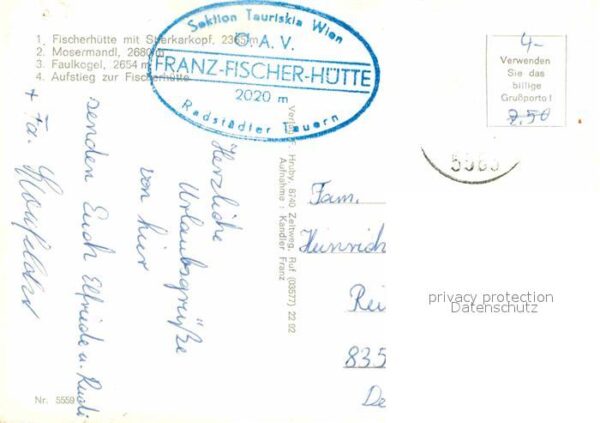 1. Fischerhütte mit Sperkarkopf, 2365 m
2. Mosermandl, 2680 m
3. Faulkogel, 2654 m
4. Aufstieg zur Fischerhütte
Sektion Tauriskia Wien
Ö. A. V.
FRANZ-FISCHER-HÜTTE
2020 m
Radstädter Tauern
4-
Verwenden
Sie das
billige
Grußporto!
2,50
5563
Herzliche
Urlaubsgrüße
von hier
senden Euch Elfriede u. Rudi
+ Fa.
Verlag: Hruby, 8740 Zeltweg, Ruf (03577) 22 92
Aufnahme: Kandler Franz
Fam.
Heinrich
Rei
835
De
privacy protection
Datenschutz
Nr. 5559